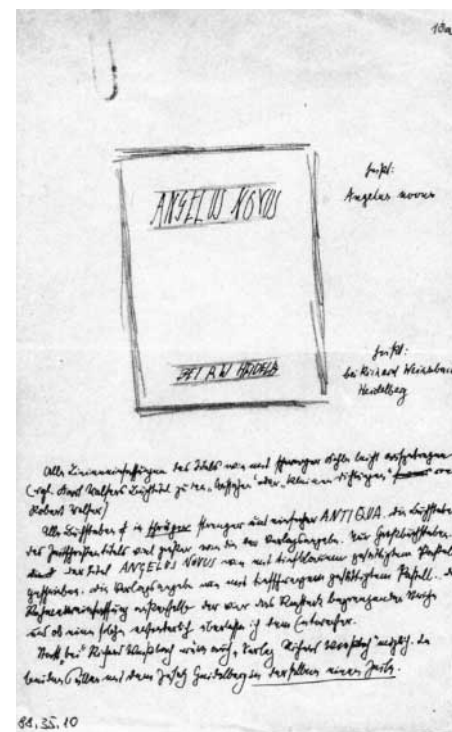 10a
ANGELUS NOVUS
heißt:
Angelus novus
BEI R W HEIDELB
heißt:
bei Richard Weissbach
Heidelberg
Alle Linieneinfassungen des Titels wie mit schwarzer Kohle leicht aufgetragen
(vgl. Karl Walsers Buchtitel zu den „Aufsätzen" oder „kleinen Dichtungen" von
Robert Walser)
Alle Buchstaben in schräger strenger und einfacher ANTIQUA. Die Buchstaben
des Zeitschriftentitels viel größer wie die der Verlagsangabe. Großbuchstaben.
der Titel ANGELUS NOVUS wie mit tiefblauem gesättigtem Pastell
geschrieben. Die Verlagsangabe wie mit tiefschwarzem gesättigtem Pastell.
außerhalb der das Rechteck begrenzenden Striche
und ob eine solche erforderlich überlasse ich dem Entwerfer.
Statt „bei" Richard Weißbach wäre auch „Verlag Richard Weißbach" möglich. In
beiden Fällen mit dem Zusatz Heidelberg in derselben einen Zeile.
88.35.10